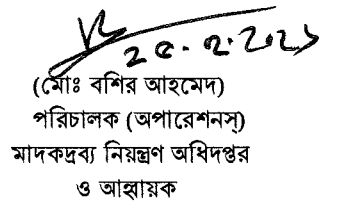 (মোঃ বশির আহমেদ)
পরিচালক (অপারেশনস্)
মাদকদ্রব্য নিয়ন্ত্রণ অধিদপ্তর
ও আহ্বায়ক